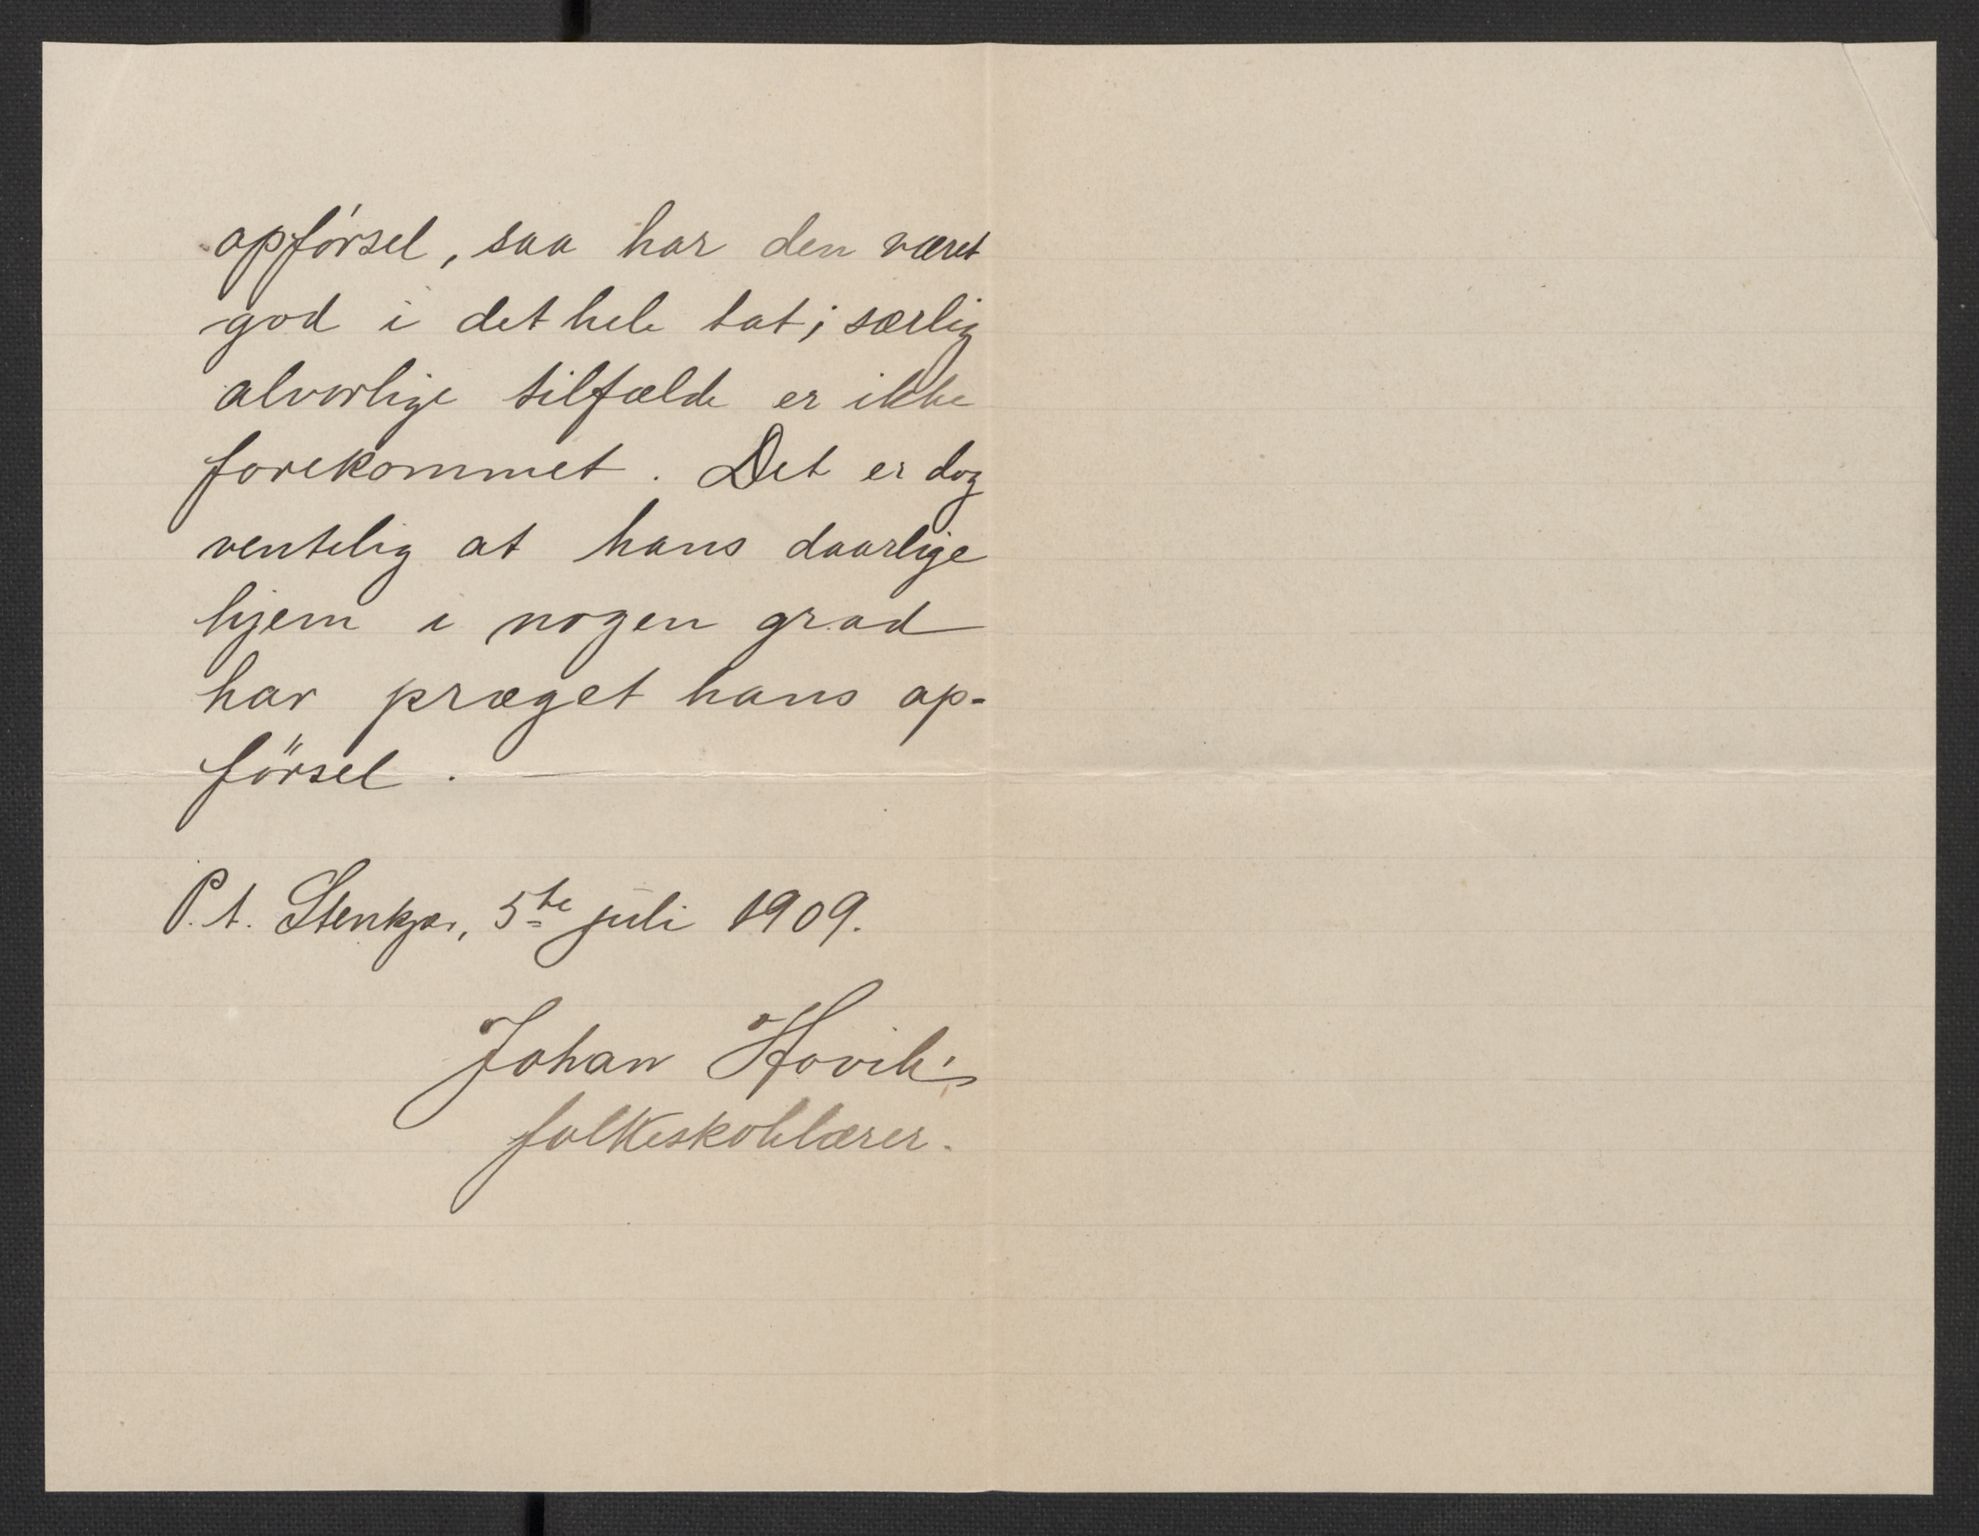 opførsel, saa har den været
god i det hele tat; særlig
alvorlige tilfælde er ikke
forekommet. Det er dog
ventelig at hans daarlige
hjem i nogen grad
har præget hans op-
førsel. —
P. t. Stenkjær, 5te juli 1909.
Johan Hovik
folkeskolelærer.